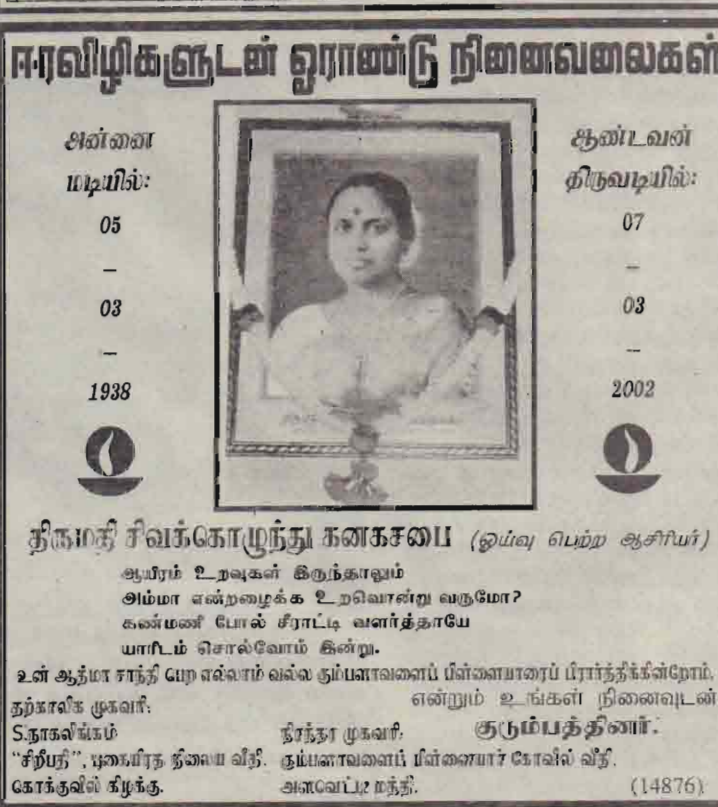 ஈரவிழிகளுடன் ஓராண்டு நினைவலைகள்
அன்னை
மடியில்:
05
–
03
–
1938
ஆண்டவன்
திருவடியில்:
07
–
03
–
2002
திருமதி சிவக்கொழுந்து கனகசபை (ஓய்வு பெற்ற ஆசிரியர்)
ஆயிரம் உறவுகள் இருந்தாலும்
அம்மா என்றழைக்க உறவொன்று வருமோ?
கண்மணி போல் சீராட்டி வளர்த்தாயே
யாரிடம் சொல்வோம் இன்று.
உன் ஆத்மா சாந்தி பெற எல்லாம் வல்ல கும்பளாவளைப் பிள்ளையாரைப் பிரார்த்திக்கின்றோம்.
என்றும் உங்கள் நினைவுடன்
குடும்பத்தினர்.
தற்காலிக முகவரி:
S.நாகலிங்கம்
"சிறீபதி", புகையிரத நிலைய வீதி,
கொக்குவில் கிழக்கு.
நிரந்தர முகவரி:
கும்பளாவளைப் பிள்ளையார் கோவில் வீதி,
அளவெட்டி மத்தி.
(14876)